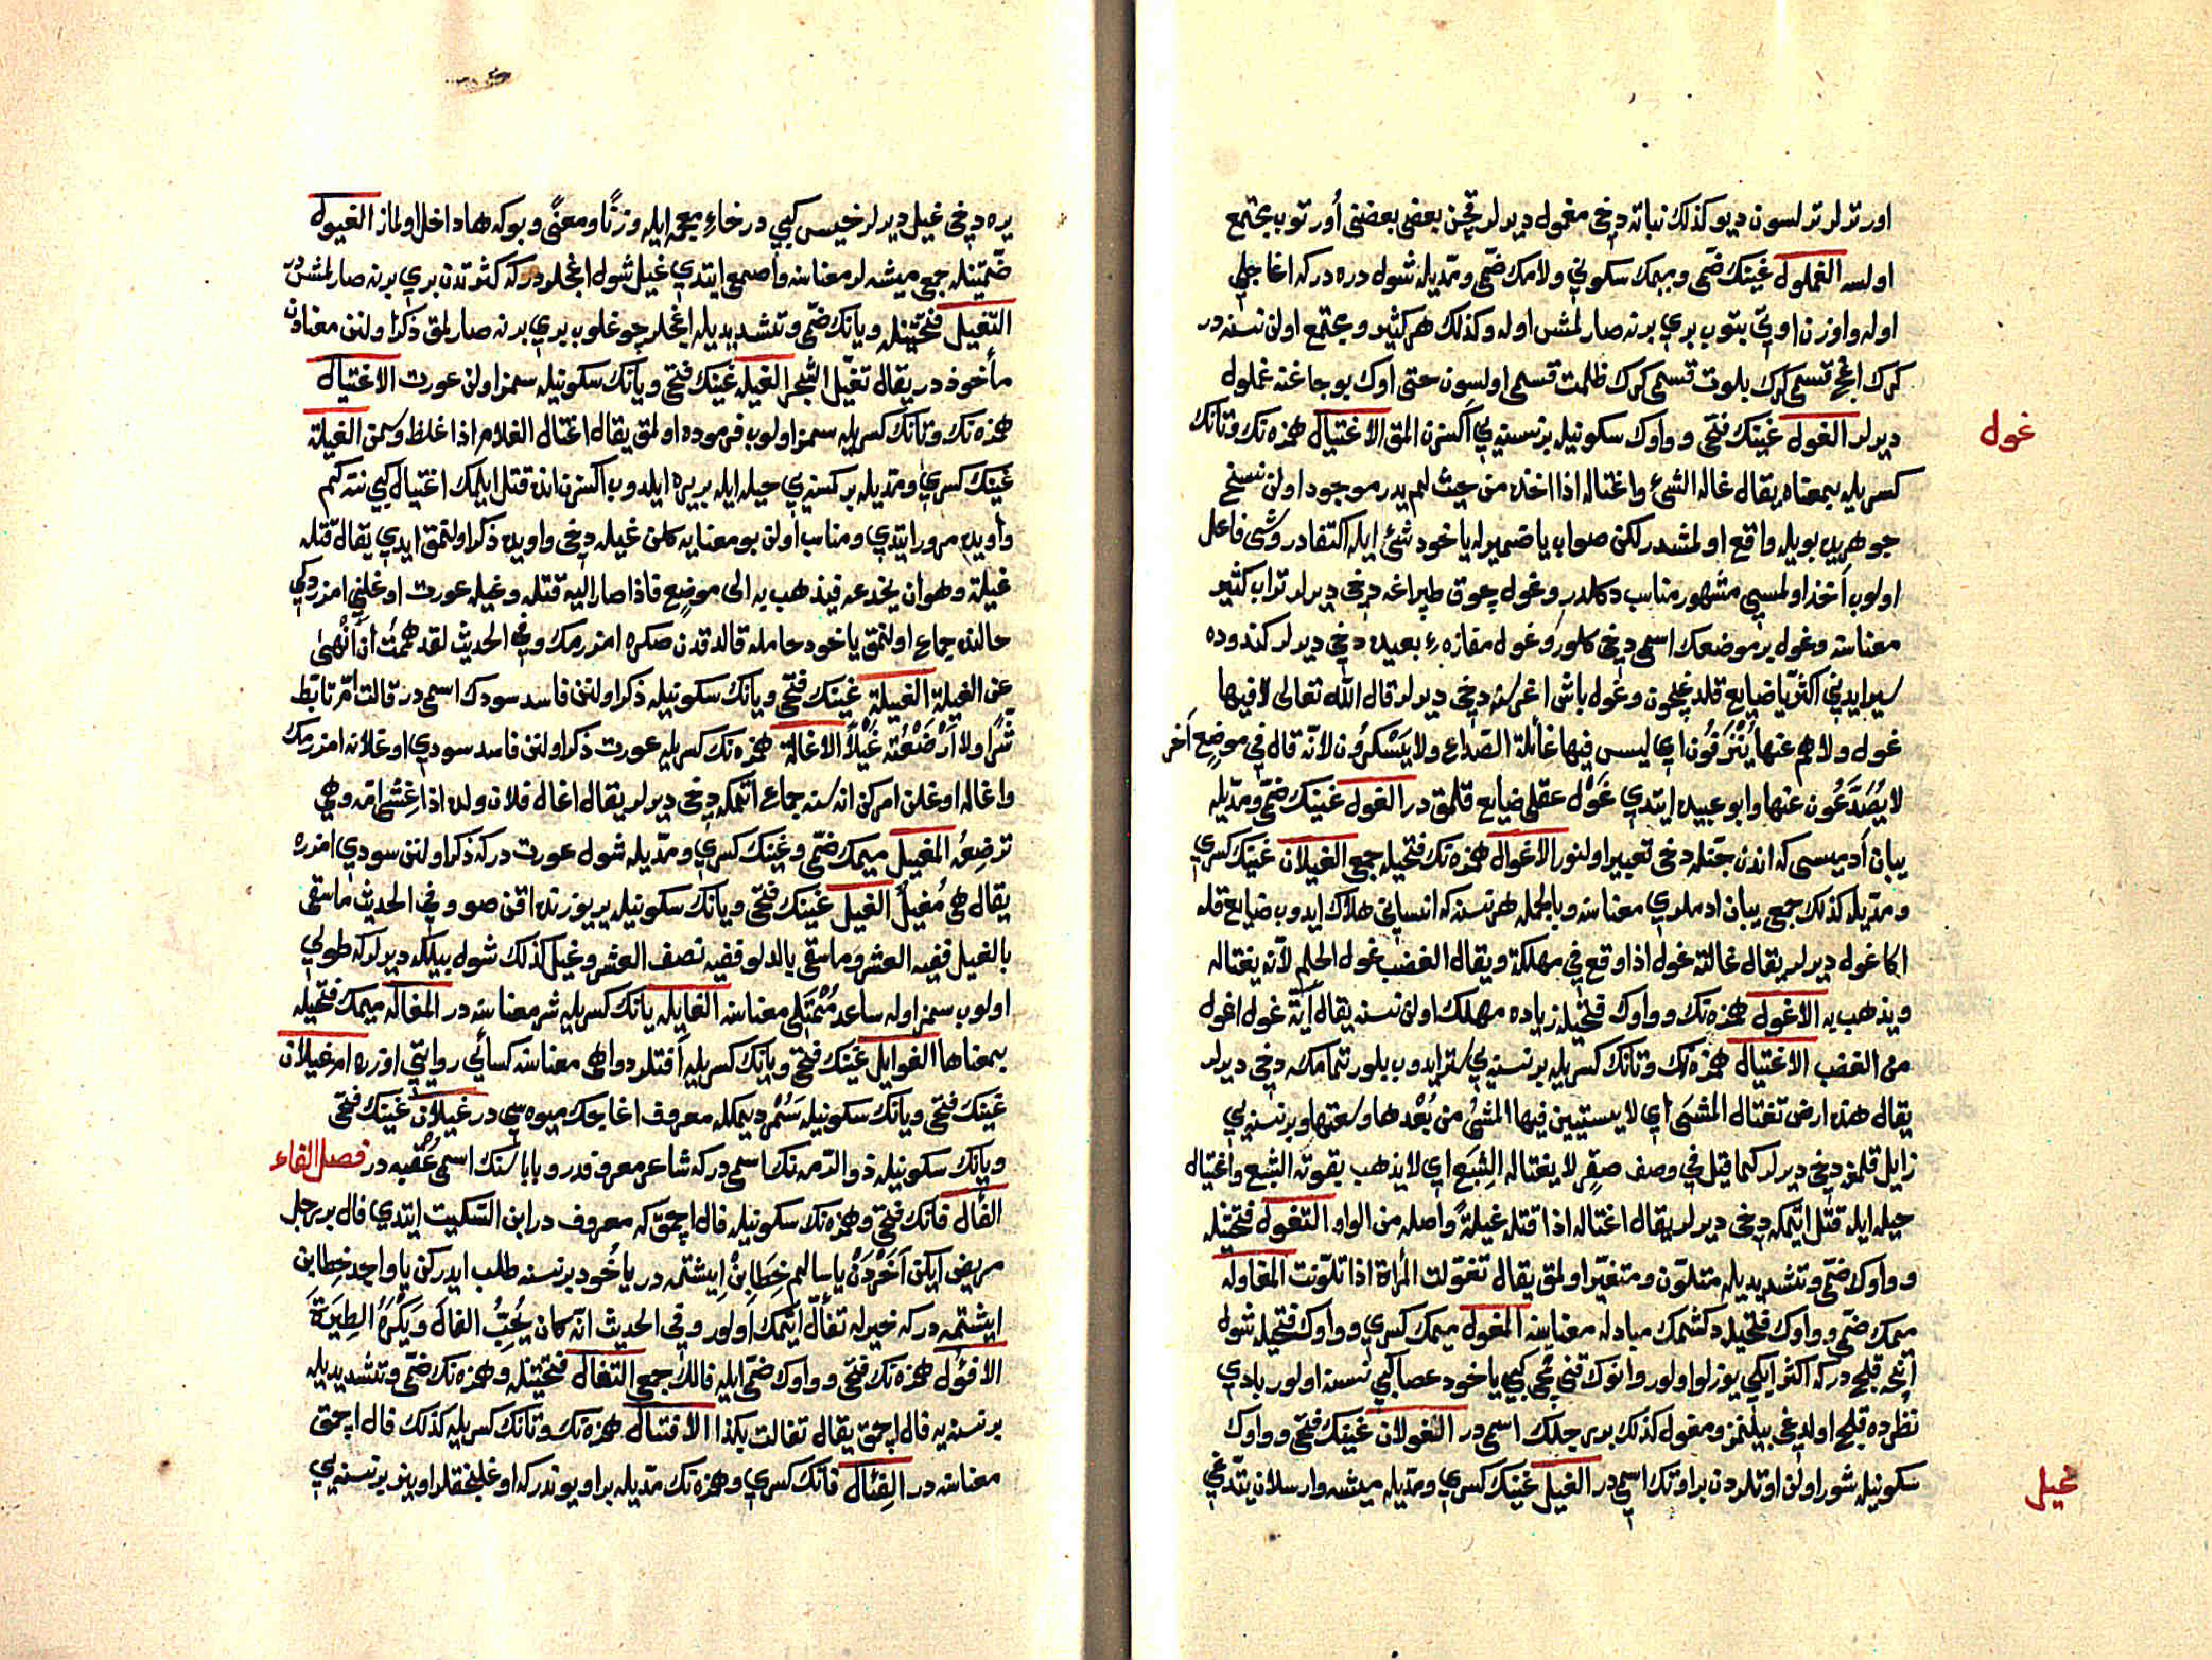 اورتر لر ترلسون ديو كذلك نباته دخى مغمول ديرلر قچن بعضى بعضنى أورتوب مجتمع
اولسه الغملول غينك ضمى وميمك سكونى ولامك ضمى ومديله شول دره دركه اغاجلى
اوله واوزن اوتى بتوب برى برنه صارلمش اوله وكذلك هر كثير ومجتمع اولن نسنه در
كرك اغج قسمى كرك بلوت قسمى كرك ظلمت قسمى اولسون حتى اوك بوجاغنه غملول
غول
ديرلر الغول غينك فتحى وواوك سكونيله بر نسنه يى اكسزن المق الاغتيال همزه نك وتانك
كسريله بمعناه يقال غاله الشئ واغتاله اذا اخذه من حيث لم يدر موجود اولن نسخ
جوهريده بويله واقع اولمشدر لكن صواب يا ضميرله ياخود شئ ايله اكتفادر وشى فاعل
اولوب أخذ اولمسى مشهور مناسب دكلدر وغول چوق طپراغه دخى ديرلر تراب كثير
معناسنه وغول بر موضعك اسمى دخى كلور وغول مفازه ء بعيده دخى ديرلر كندوده
سير ايدنى اكثريا ضايع قلدغيچون وغول باش اغرسنه دخى ديرلر قال الله تعالى لا فيها
غول ولا هم عنها ينزفون اي ليس فيها غائلة الصداع ولا يسكرون لانه قال في موضع أخر
لا يصدعون عنها وابو عبيده ايتدي غول عقلى ضايع قلمق در الغول غينك ضمى ومديله
يبان أدميسى كه اندن جنله دخى تعبير اولنور الاغوال همزه نك فتحيله جمع الغيلان غينك كسرى
ومديله كذلك جمع يبان ادملرى معناسنه وبالجمله هر نسنه كه انسانى هلاك ايدوب ضايع قله
اكا غول ديرلر يقال غالته غول اذا وقع في مهلكة ويقال الغضب غول الحلم لانه يغتاله
ويذهب به الاغول همزه نك وواوك فتحيله زياده مهلك اولن نسنه يقال أية غول اغول
من الغضب الاغتيال همزه نك وتانك كسريله بر نسنه يى ستر ايدوب بلورتمامكه دخى ديرلر
يقال هذه ارض تغتال المشى اي لا يستبين فيها المشى من بعدها وسعتها وبر نسنه يى
زايل قلمغه دخى ديرلر كما قيل في وصف صقر لا يغتاله الشبع اي لا يذهب بقوته الشبع واغتيال
حيله ايله قتل ايتمكه دخى ديرلر يقال اغتاله اذا قتله غيلة واصله من الواو التغول فتحتينله
وواوك ضمى وتشديديله متلون ومتغير اولمق يقال تغولت المرأة اذا تلونت المغاوله
ميمك ضمى وواوك فتحيله دكشمك مبادله معناسنه المغول ميمك كسرى وواوك فتحيله شول
انجه قلج دركه اكثر ايكى يوزلو اولور وانوك قنى قمچى كبى ياخود عصا كبى نسنه اولور بادى
نظرده قلج اولدغى بيلنمز ومغول كذلك بر رجلك اسمى در الغولان غينك فتحى وواوك
غيل
سكونيله شور اولن اوتلردن بر اوتك اسمى در الغيل غينك كسرى ومديله ميشه وارسلان يتدغى
يره دخى غيل ديرلر خيس كبى در خاء معجمه ايله وزنا ومعنى وبوكه ها داخل اولماز الغيول
ضمتينله جمع ميشه لر معناسنه واصمعى ايتدي غيل شول اغجلردركه كثرتدن برى برنه صارلمشدر
التغيل فتحتينله ويانك ضمى وتشديديله اغجلر چوغلوب برى برنه صارلمق ذكر اولنن معنادن
مأخوذدر يقال تغيل الشجر الغيله غينك فتحى ويانك سكونيله سمز اولن عورت الاغتيال
همزه نك وتانك كسريله سمز اولوب فرموده اولمق يقال اغتال الغلام اذا غلظ وسمن الغيلة
غينك كسرى ومديله بر كسنه يى حيله ايله بر يره ايلدوب اكسزن انده قتل ايلمك اغتيال كبى نته كم
واويده مرور ايتدي ومناسب اولن بو معنايه كلن غيله دخى واويده ذكر اولنمق ايدي يقال قتله
غيلة وهو ان يخدعه فيذهب به الى موضع فاذا صار اليه قتله وغيله عورت اوغلنى امزردكى
حالنده جماع اولنمق ياخود حامله قالدقدن صكره امزرمك وفى الحديث لقد هممت أن أنهى
عن الغيلة الغيلة غينك فتحى ويانك سكونيله ذكر اولنن فاسد سودك اسمى در قالت ام تأبط
شرا ولا أرضعته غيلا الاغالة همزه نك كسريله عورت ذكر اولنن فاسد سودى اوغلانه امزرمك
واغاله اوغلن امركن انه سنه جماع اتمكه دخى ديرلر يقال اغال فلان ولده اذا غشى امه وهي
ترضعه المغيل ميمك ضمى وغينك كسرى ومديله شول عورت دركه ذكر اولنن سودى امزره
يقال هى مغيل الغيل غينك فتحى ويانك سكونيله ير يوزنده اقن صو وفى الحديث ما سقى
بالغيل ففيه العشر وما سقى بالدلو ففيه نصف العشر وغيل كذلك شول بيلكه ديرلركه طولى
اولوب سمز اوله ساعد ممتلى معناسنه الغايله يانك كسريله شر معناسنه در المغاله ميمك فتحيله
بمعناها الغوايل غينك فتحى ويانك كسريله أفتلر دواهى معناسنه كسائى روايتى اوزره ام غيلان
غينك فتحى ويانك سكونيله سمر ديمكله معروف اغاجك ميوه سى در غيلان غينك فتحى
ويانك سكونيله ذو الرمه نك اسمى دركه شاعر معروفدر وباباسنك اسمى عقبه در فصل الفاء
الفأل فانك فتحى وهمزه نك سكونيله فال اچمق كه معروف در ابن السكيت ايتدي فال بر رجل
مريض ايكن أخردن يا سالم خطابن ايشتمه در ياخود بر نسنه طلب ايدركن يا واجد خطابن
ايشتمه دركه خيرله تفأل ايتمك اولور وفى الحديث انه كان يحب الفأل ويكره الطيرة
الافؤل همزه نك فتحى وواوك ضمى ايله فالك جمعى التفأل فتحتينله وهمزه نك ضمى وتشديديله
بر نسنه يه فال اچمق يقال تفالت بكذا الافتئال همزه نك وتانك كسريله كذلك فال اچمق
معناسنه در الفئال فانك كسرى وهمزه نك مديله بر اويوندركه اوغلنجقلر اوينر بر نسنه يى